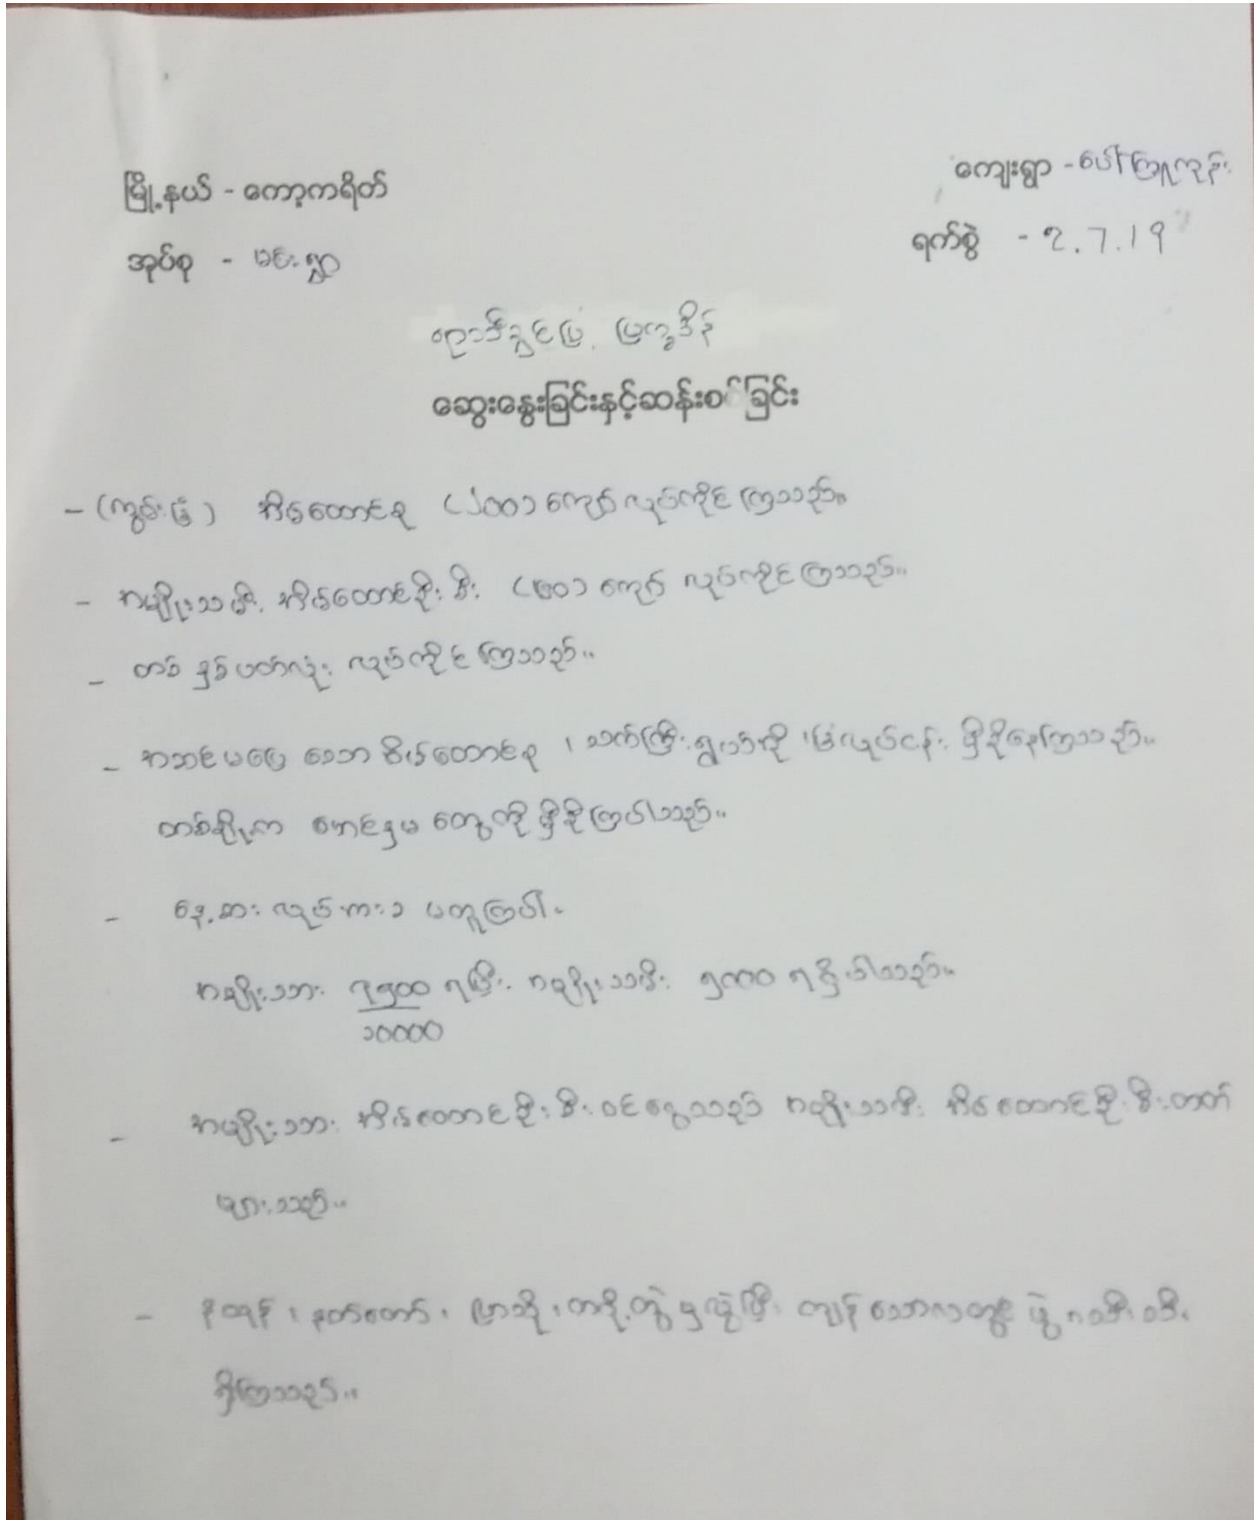 မြို့နယ် - ကော့ကရိတ်
ကျေးရွာ - ပေါ်ကြူကုန်း
အုပ်စု - မင်းရွာ
ရက်စွဲ - 2.7.19
ရာသီခွင်ပြ ပြက္ခဒိန်
ဆွေးနွေးခြင်းနှင့်ဆန်းစစ်ခြင်း
- (ကွမ်းခြံ) အိမ်ထောင်စု (၂၀၀) ကျော် လုပ်ကိုင်ကြသည်။
- အမျိုးသမီး အိမ်ထောင်ဦးစီး (၆၀) ကျော် လုပ်ကိုင်ကြသည်။
- တစ်နှစ်ပတ်လုံး လုပ်ကိုင်ကြသည်။
- အဆင်မပြေသော အိမ်ထောင်စု ၊ သက်ကြီးရွယ်အို ၊ ခြံလုပ်ငန်း မှီခိုနေကြသည်။
တစ်ချို့က မောင်နှမ တွေကို မှီခိုကြပါသည်။
- နေ့စားလုပ်အားခ မတူကြပါ။
အမျိုးသား ၇၅၀၀ ရပြီး အမျိုးသမီး ၅၀၀၀ ရရှိပါသည်။
၁၀၀၀၀
- အမျိုးသား အိမ်ထောင်ဦးစီး ဝင်ငွေသည် အမျိုးသမီး အိမ်ထောင်ဦးစီးထက်
များသည်။
- နတ္တန် ၊ နတ်တော် ၊ ပြာသို ၊ တပို့တွဲ မှလွဲပြီး ကျန်သောလတွင် ပွဲ
ရှိကြသည်။